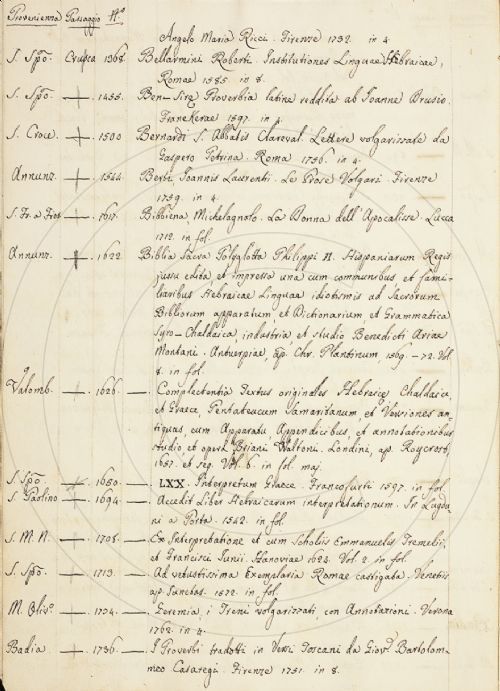 Provenienza Passaggio N.°
Angelo Maria Ricci. Firenze 1732. in 4.
S. Spo. Crusca 1368. Bellarmini Roberti. Institutiones Linguae Hebraicae,
Romae 1585. in 8.
S. Spo. 1455. Ben-Sirae Proverbia latine reddita ab Joanne Drusio.
Franekerae 1597. in 4.
S. Croce. 1500 Bernardi S. Abbatis Clareval. Lettere volgarizzate da
Gaspero Petrina. Roma. 1756. in 4.
Annunz. 1544. Berti Joannis Laurenti. Le Prose Volgari. Firenze
1759. in 4.
S. Fr. a Fies. 1617. Bibbiena, Michelagnolo. La Donna dell'Apocalisse. Lucca
1712. in fol.
Annunz. 1622. Biblia Sacra Polyglotta Philippi II. Hispaniarum Regis
jussu edita, et impressa una cum communibus et fami-
liaribus Hebraicae Linguae idiotismis ad Sacrorum
Bibliorum apparatum et Dictionarium, et Grammatica
Syro-Chaldaica, industria, et studio Benedicti Ariae
Montani. Antuerpiae, ap. Chr. Plantinum, 1569.-72. Vol.
8. in fol.
Valomb. 1626. — Complectentia Textus originales Hebraice, Chaldaice,
et Graece, Pentateucum Samaritanum, et Versiones an-
tiquas, cum Apparatu, Appendicibus, et annotationibus
studio et opera Briani Waltoni. Londini, ap. Roycroft,
1657. et seq. Vol. 6. in fol. maj.
S. Spo. 1680. — LXX. Interpretum Graece. Francofurti 1597. in fol.
S. Paolino 1694. — Accedit Liber Hebraicarum interpretationum. In Lugdu-
ni a Porta. 1542. in fol.
S. M. N. 1708. — Ex Interpretatione et cum Scholiis Emmanuelis Tremelii,
et Francisci Junii. Hanoviae 1624. Vol. 2. in fol.
S. Spo. 1713. — Ad vetustissima Exemplaria Romae castigata. Venetiis
ap. Juncbos. 1572. in fol.
M. Oliv. 1734. — Geremia, i Treni volgarizzati, con Annotazioni. Verona
1762. in 4.
Badia. 1736. — I Proverbi tradotti in Versi Toscani da Giov. Bartolom-
meo Casaregi. Firenze 1751. in 8.